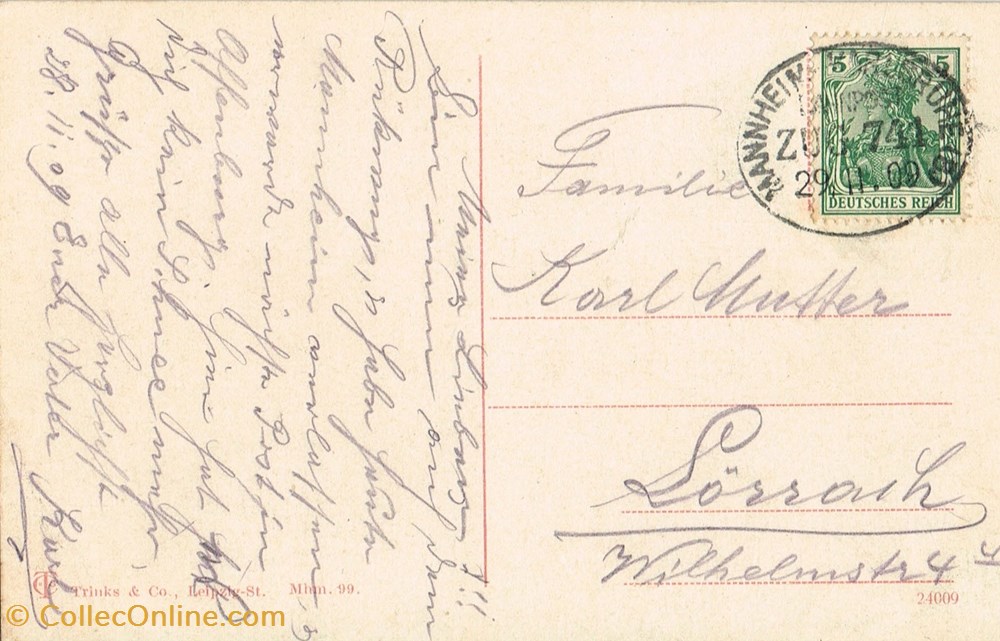 Meine Lieben!!!
Bin nun auf dem
Rückweg, habe heute
Mannheim verlassen, u.
nächste
Offenburg. Hier hat
kein Schnee mehr,
Grüße alle herzlichst
28.11.09 Euer Vater Karl
5 5
DEUTSCHES REICH
MANNHEIM
ZUG 741
29.11.09
Familie
Karl Mutter
Lörrach
Wilhelmstr 4
Trinks & Co., Leipzig-St. Mhm. 99.
24009
© CollecOnline.com